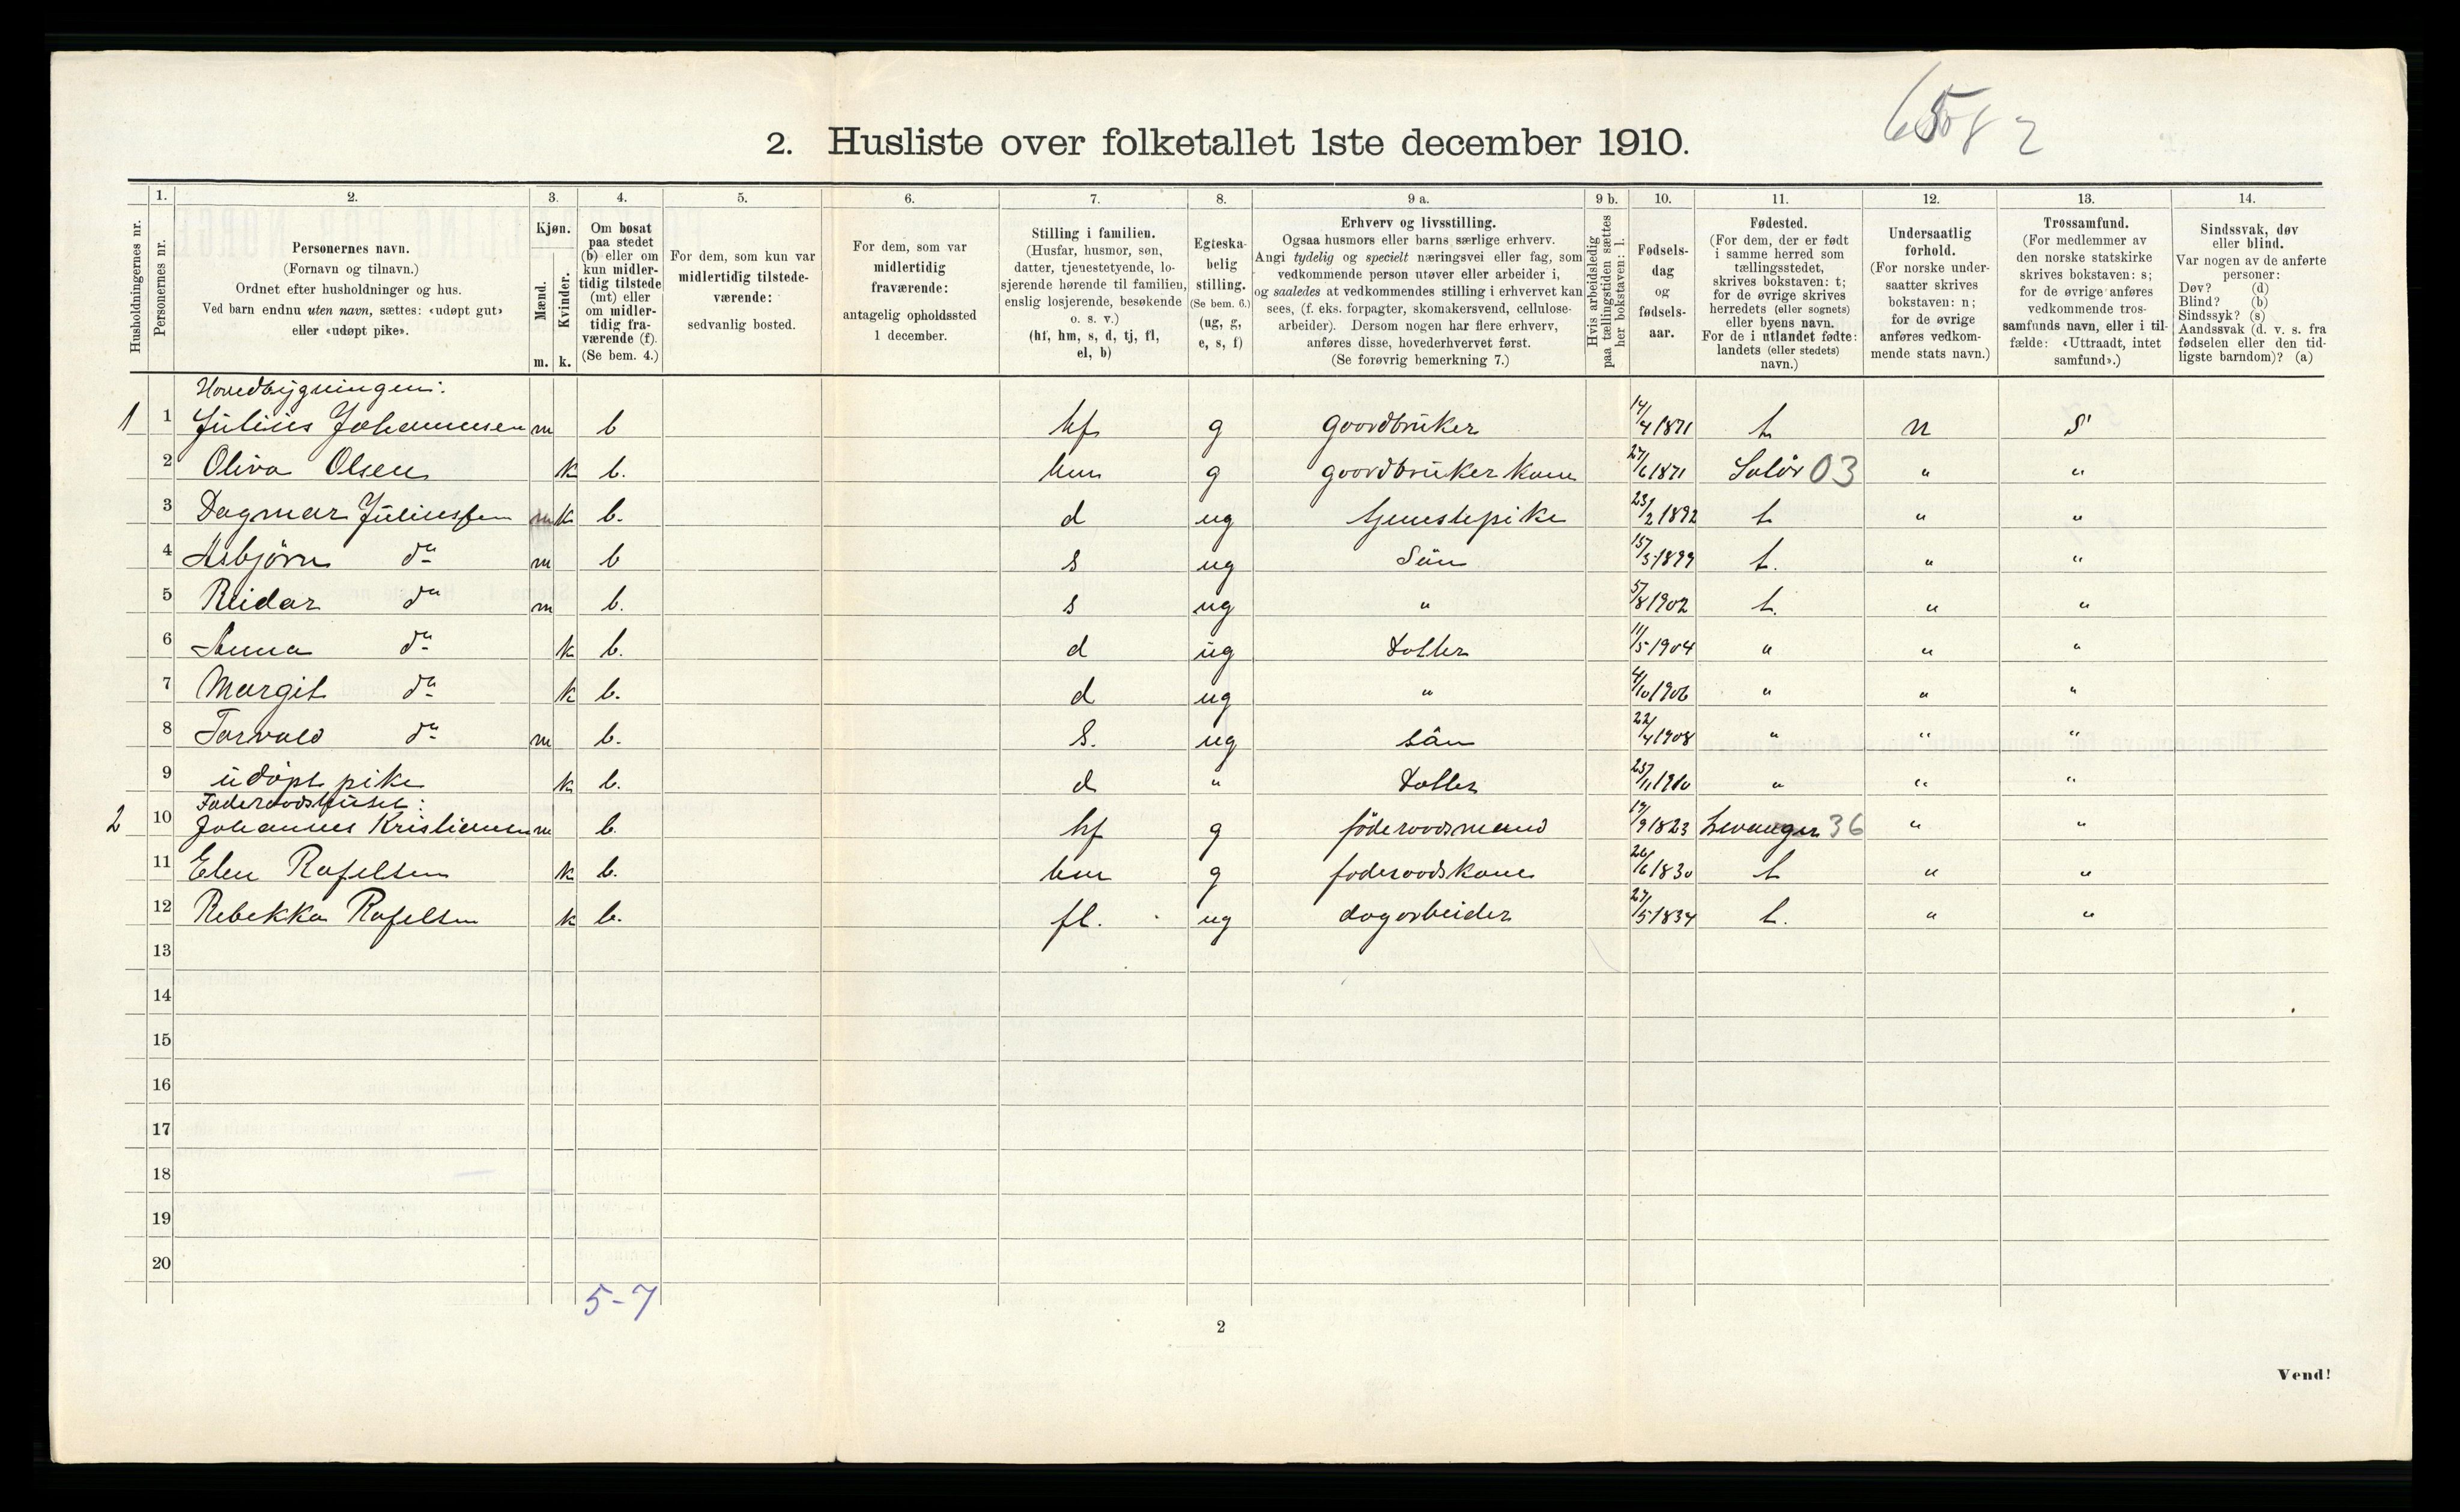 6508 2
2. Husliste over folketallet 1ste december 1910.
Husholdningernes nr.
1. Personernes nr.
2. Personernes navn. (Fornavn og tilnavn.) Ordnet efter husholdninger og hus. Ved barn endnu uten navn, sættes: «udøpt gut» eller «udøpt pike».
3. Kjøn. Mænd. m. Kvinder. k.
4. Om bosat paa stedet (b) eller om kun midlertidig tilstede (mt) eller om midlertidig fraværende (f). (Se bem. 4.)
5. For dem, som kun var midlertidig tilstedeværende: sedvanlig bosted.
6. For dem, som var midlertidig fraværende: antagelig opholdssted 1 december.
7. Stilling i familien. (Husfar, husmor, søn, datter, tjenestetyende, losjerende hørende til familien, enslig losjerende, besøkende o. s. v.) (hf, hm, s, d, tj, fl, el, b)
8. Egteskabelig stilling. (Se bem. 6.) (ug, g, e, s, f)
9 a. Erhverv og livsstilling. Ogsaa husmors eller barns særlige erhverv. Angi tydelig og specielt næringsvei eller fag, som vedkommende person utøver eller arbeider i, og saaledes at vedkommendes stilling i erhvervet kan sees, (f. eks. forpagter, skomakersvend, cellulosearbeider). Dersom nogen har flere erhverv, anføres disse, hovederhvervet først. (Se forøvrig bemerkning 7.)
9 b. Hvis arbeidsledig paa tællingstiden sættes her bokstaven: l.
10. Fødselsdag og fødselsaar.
11. Fødested. (For dem, der er født i samme herred som tællingsstedet, skrives bokstaven: t; for de øvrige skrives herredets (eller sognets) eller byens navn. For de i utlandet fødte: landets (eller stedets) navn.)
12. Undersaatlig forhold. (For norske undersaatter skrives bokstaven: n; for de øvrige anføres vedkommende stats navn.)
13. Trossamfund. (For medlemmer av den norske statskirke skrives bokstaven: s; for de øvrige anføres vedkommende trossamfunds navn, eller i tilfælde: «Uttraadt, intet samfund».)
14. Sindssvak, døv eller blind. Var nogen av de anførte personer: Døv? (d) Blind? (b) Sindssyk? (s) Aandssvak (d. v. s. fra fødselen eller den tidligste barndom)? (a)
Hovedbygningen:
1 1 Julius Johannesen m b hf g goordbruker 14/4 1871 t n S
2 Oliva Olsen k b. hm g goordbruker kone 27/6 1871 Solør 03 " "
3 Dagmar Juliussen k b. d ug tjenestepike 23/2 1892 t " "
4 Asbjörn do m b s ug Sön 15/3 1899 t. " "
5 Reidar do m b. s ug " 5/8 1902 t. " "
6 Anna do k b. d ug Dotter 11/5 1904 " " "
7 Margit do k b. d ug " 4/10 1906 " " "
8 Torvald do m b. S. ug sön 22/4 1908 " " "
9 udöpt pike k b. d " Dotter 25/11 1910 " " "
Foderoodshuset:
2 10 Johannes Kristiansen m b. hf g föderoodsmand 19/9 1823 Levanger 36 " "
11 Elen Rafelsen k b. hm g foderoodskone 26/6 1830 t " "
12 Rebekka Rafelsen k b. fl. ug dagarbeider 27/5 1834 t. " "
13
14
15
16
17
18
19
20
5-7
2
Vend!